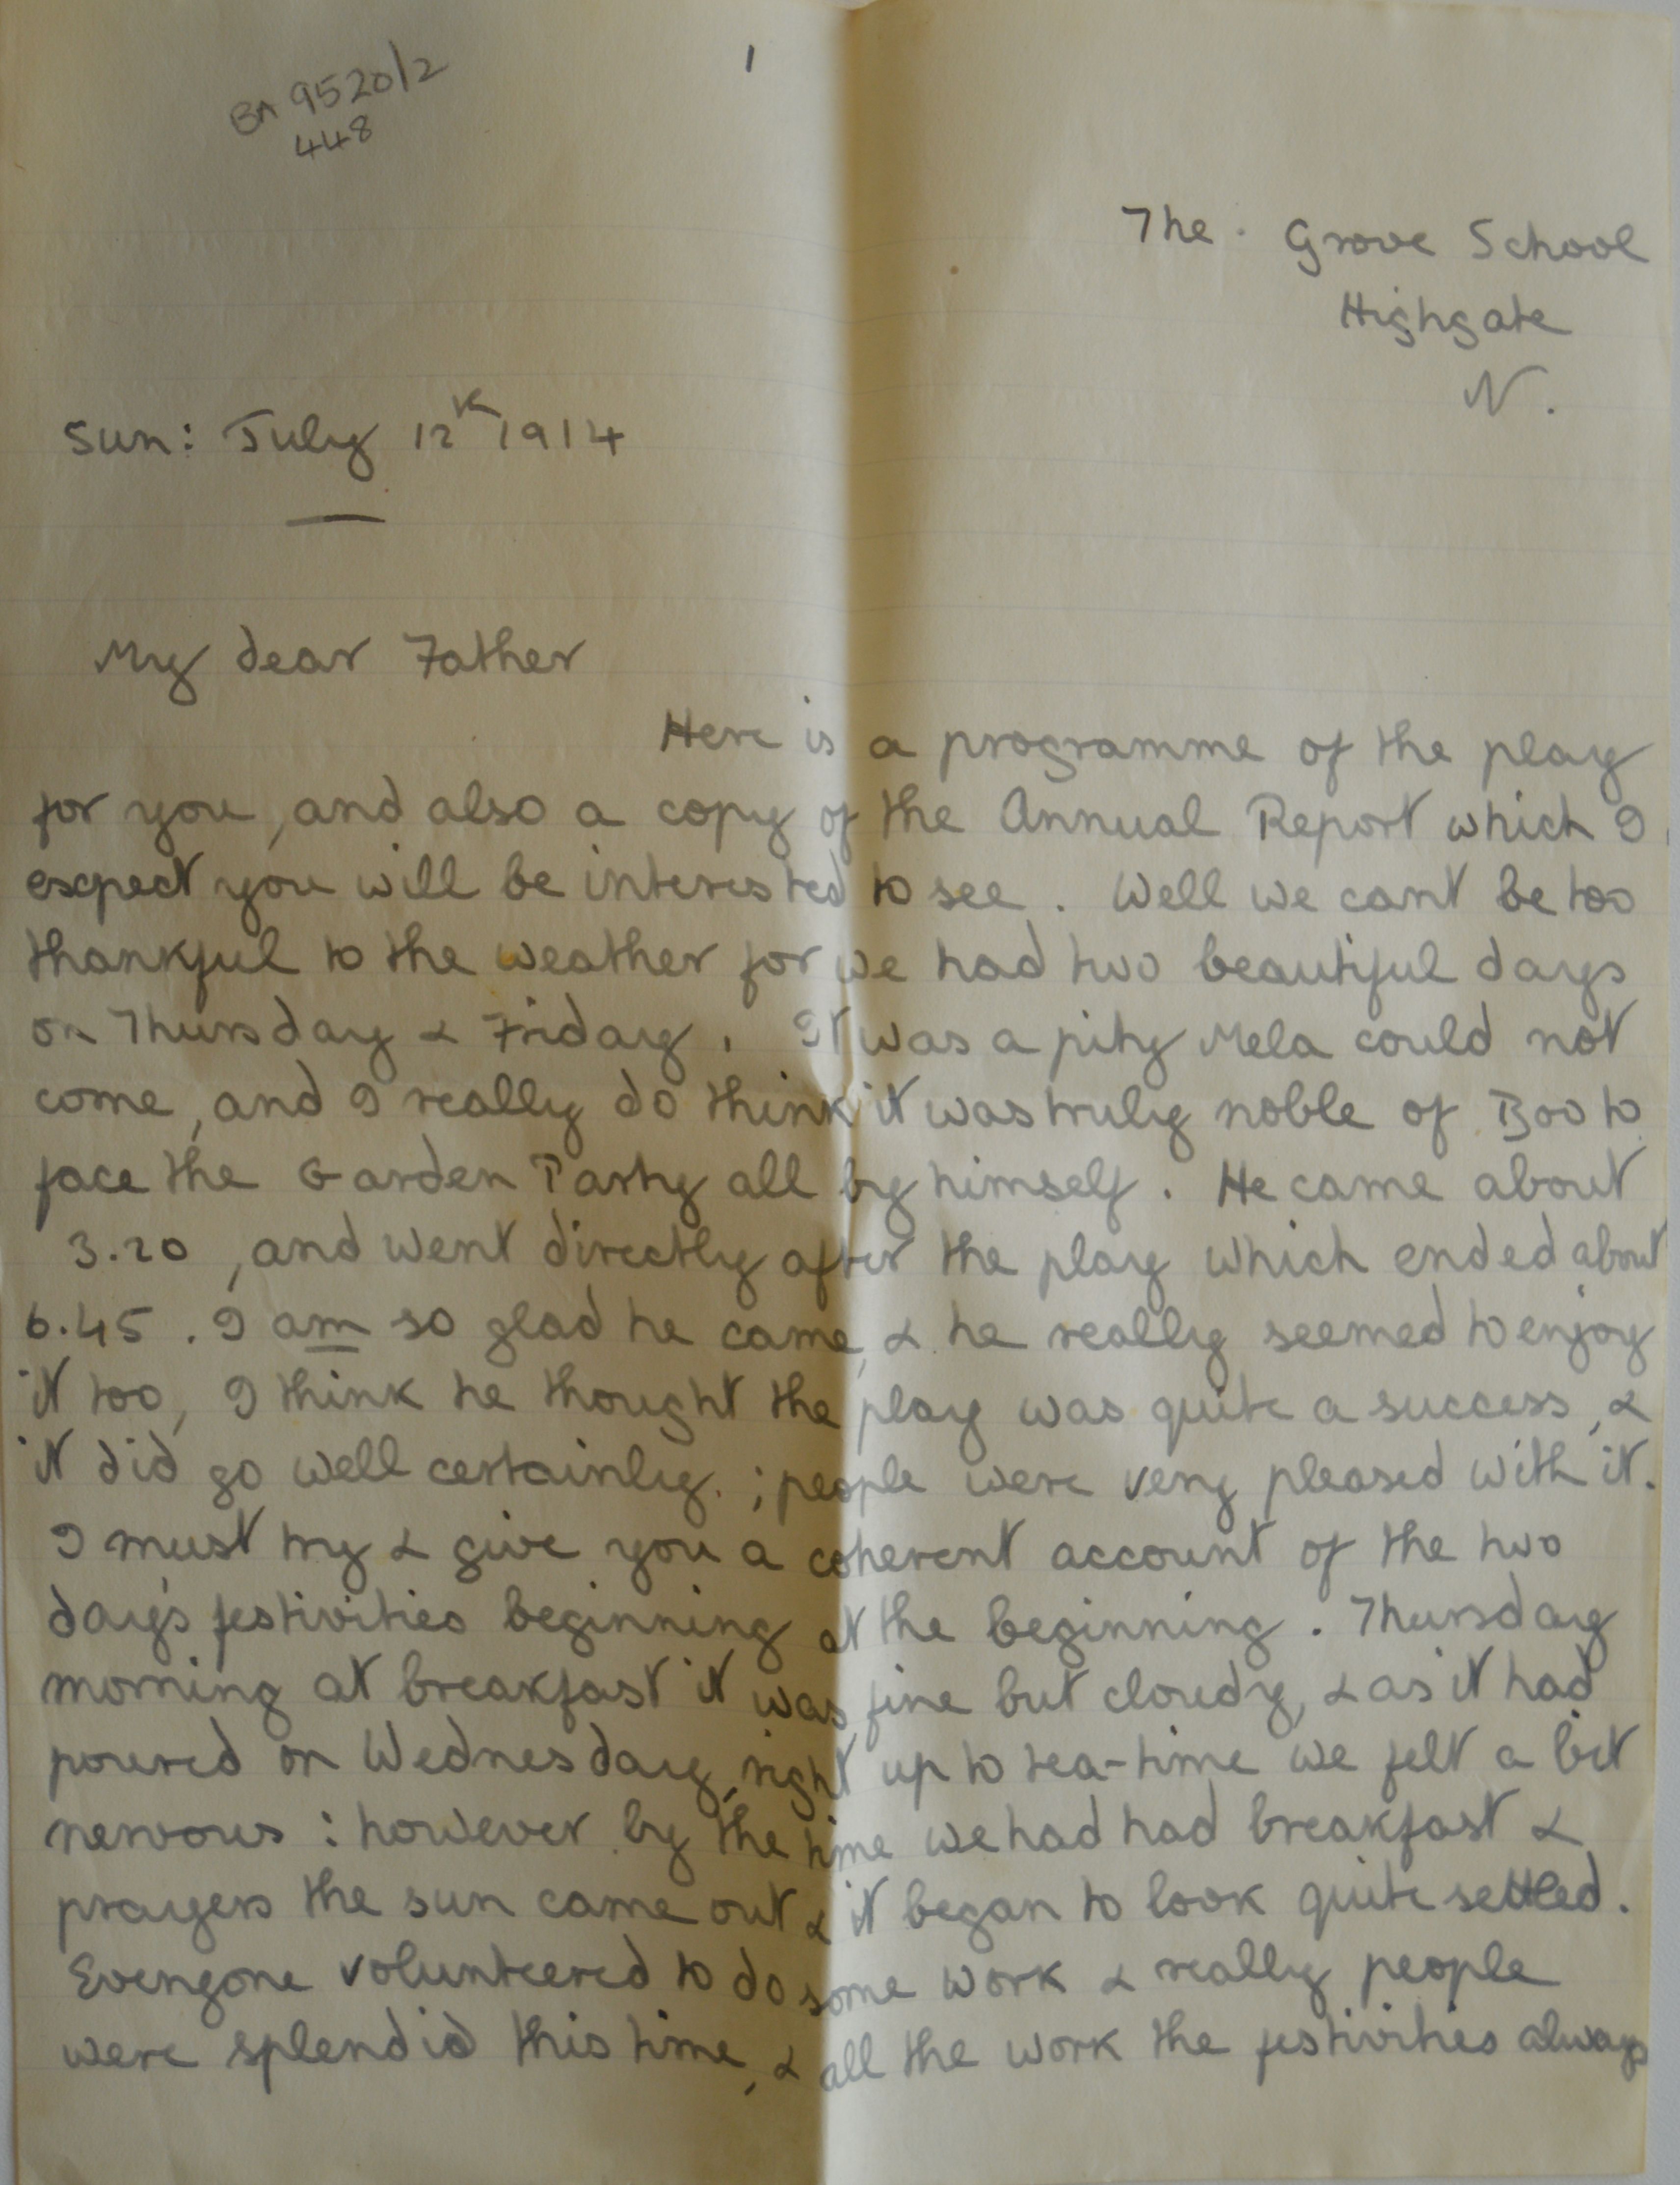 1
BA 9520/2
448
The Grove School
Highgate
N.
Sun: July 12th 1914
My dear Father
Here is a programme of the play
for you, and also a copy of the Annual Report which I
expect you will be interested to see. Well we cant be too
thankful to the weather for we had two beautiful days
on Thursday & Friday. It was a pity Mela could not
come, and I really do think it was truly noble of Boo to
face the Garden Party all by himself. He came about
3.20, and went directly after the play which ended about
6.45. I am so glad he came, & he really seemed to enjoy
it too, I think he thought the play was quite a success, &
it did go well certainly; people were very pleased with it.
I must try & give you a coherent account of the two
day's festivities beginning at the beginning. Thursday
morning at breakfast it was fine but cloudy, & as it had
poured on Wednesday, right up to tea-time we felt a bit
nervous: however by the time we had had breakfast &
prayers the sun came out & it began to look quite settled.
Everyone volunteered to do some work & really people
were splendid this time, & all the work the festivities always